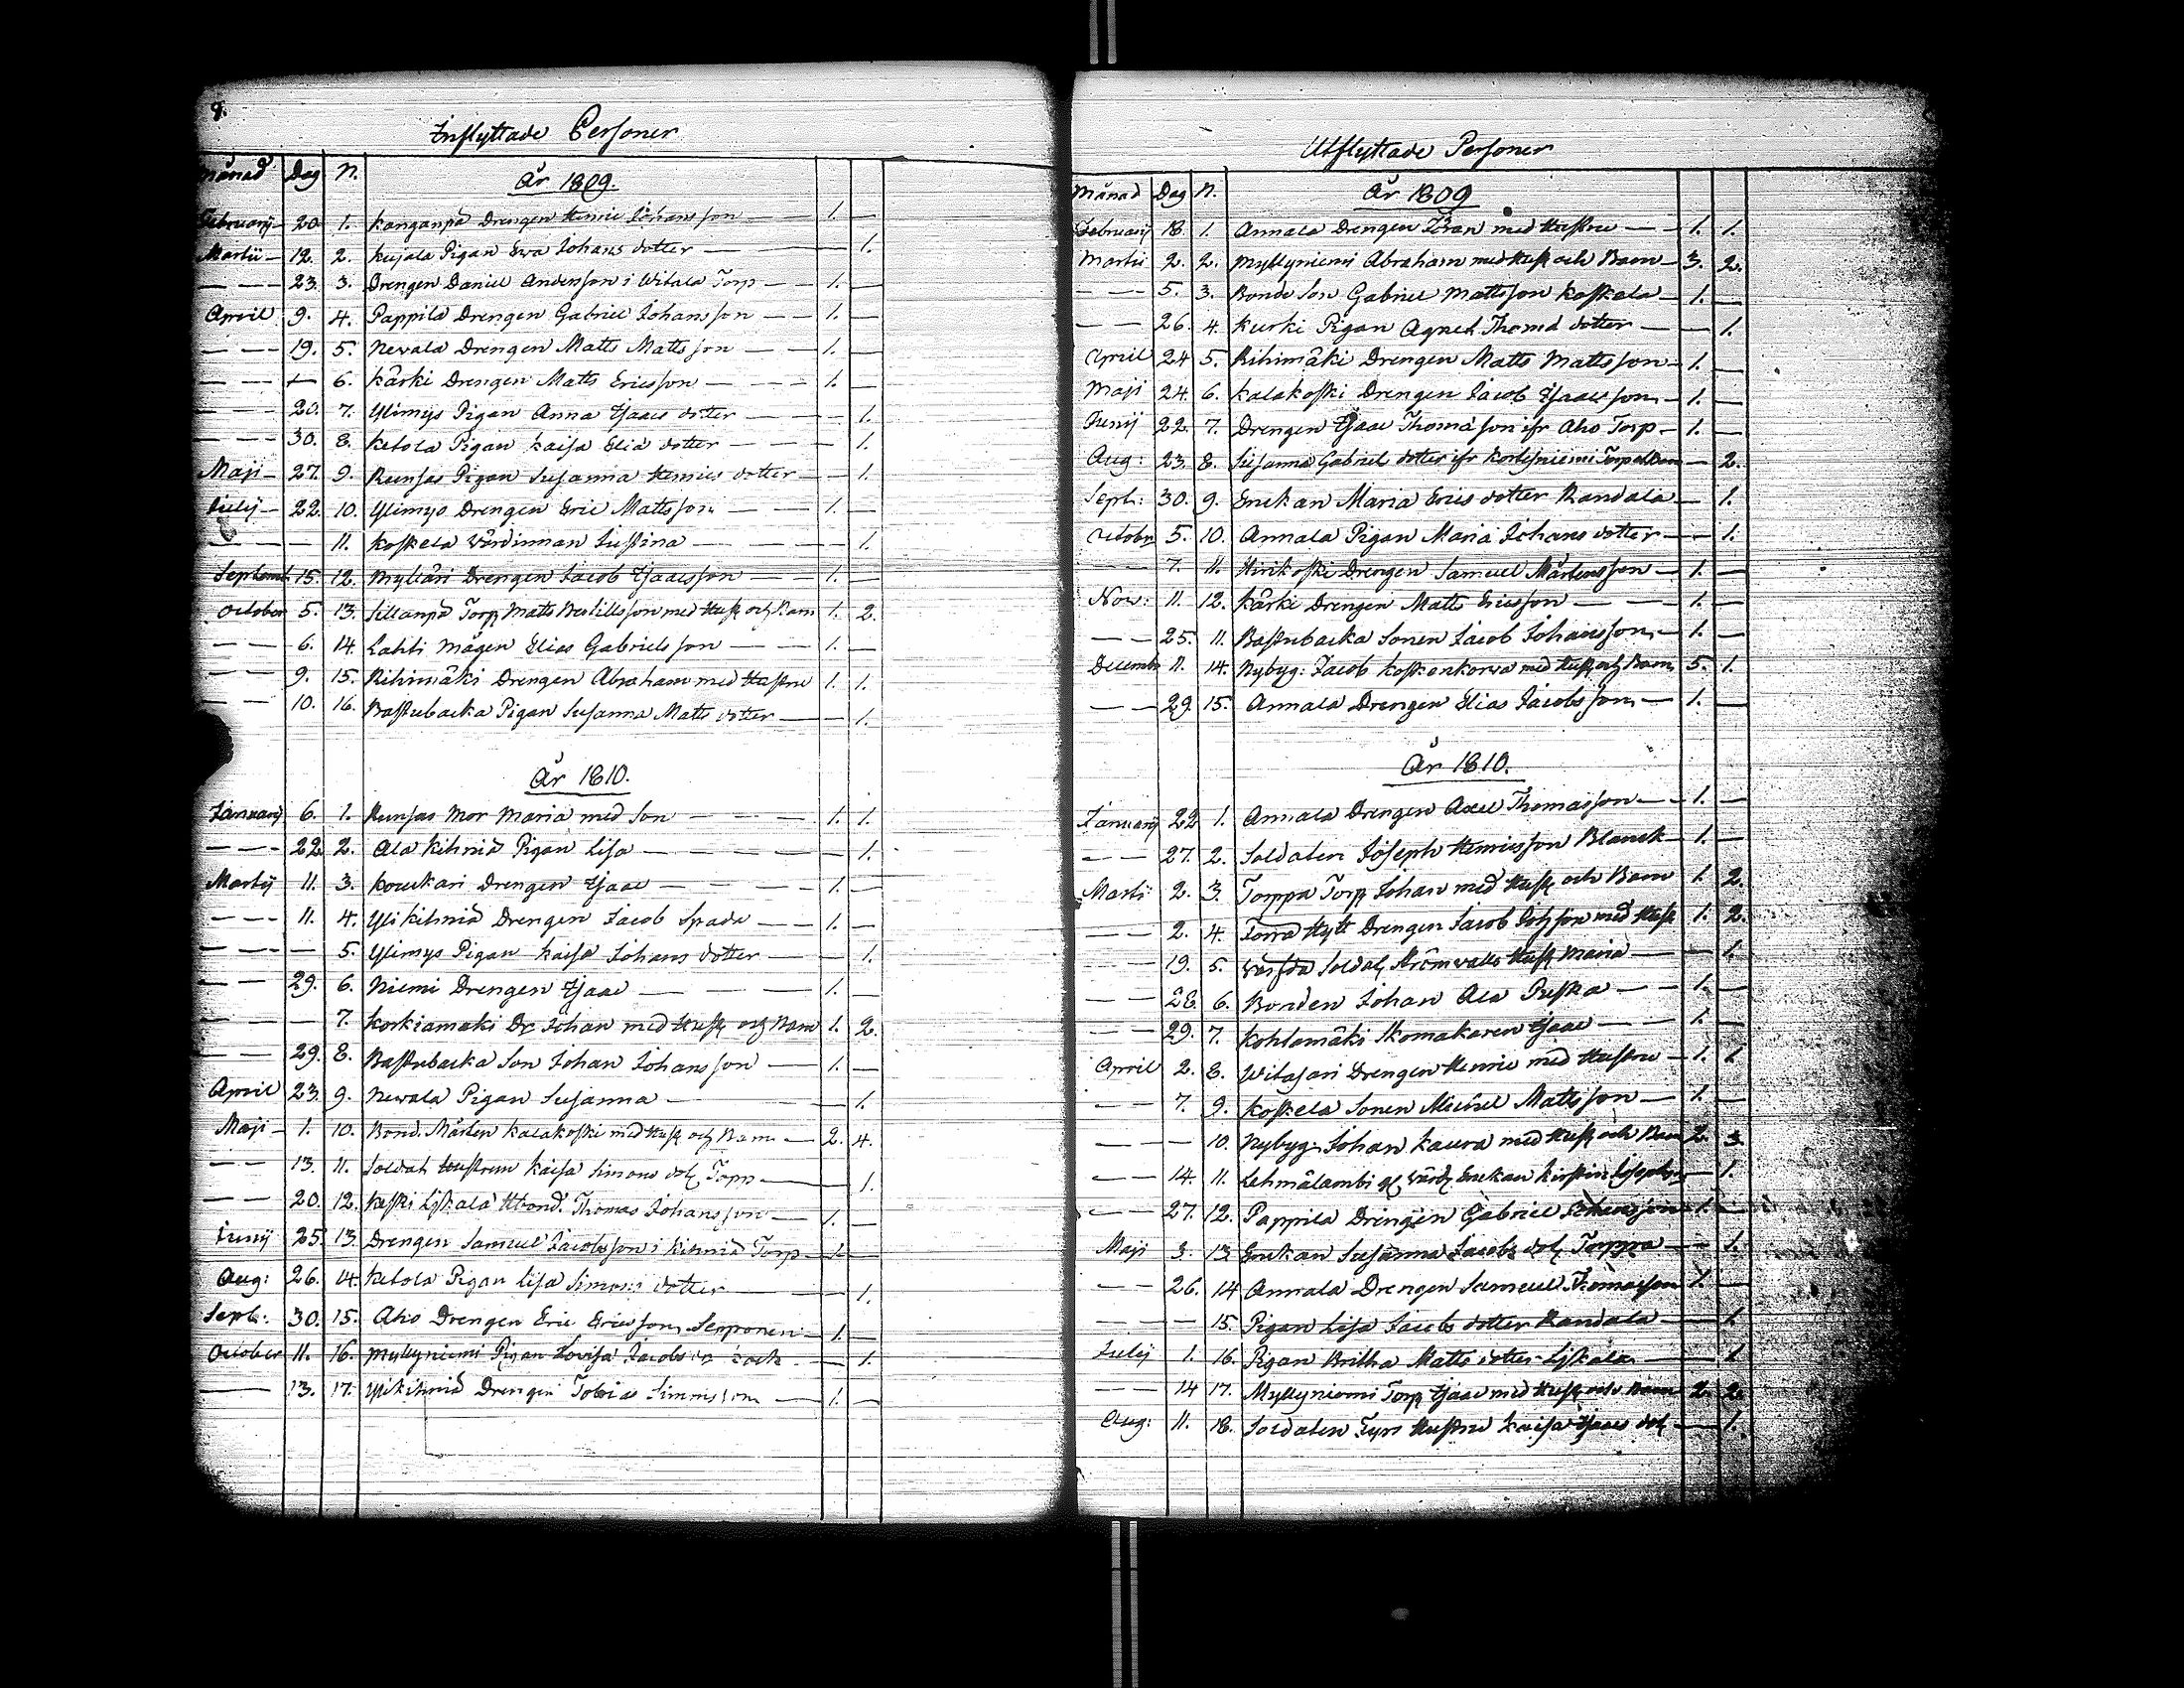 9.
Inflyttade Personer
Månad Dag N. År 1809.
Februarij 20. 1. Kanganpä Drengen Henric Johansson — 1. —
Martii 12. 2. Kujala Pigan Ewa Johans dotter — 1.
— 23. 3. Drengen Daniel Andersson i Witala Torp — 1. —
April 9. 4. Pappila Drengen Gabriel Johansson — 1. —
— 19. 5. Nevala Drengen Matts Mattsson — 1. —
— — 6. Kärki Drengen Matts Ericsson — 1. —
— 20. 7. Ylimys Pigan Anna Isaacs dotter — 1.
— 30. 8. Ketola Pigan Kaisa Elia dotter — 1.
Maji 27. 9. Runsas Pigan Susanna Henrics dotter — 1.
Julij 22. 10. Ylimys Drengen Eric Mattsson — 1. —
— — 11. Koskela Värdinnan Justina — 1.
Septemb. 15. 12. Mylläri Drengen Jacob Isaacsson — 1. —
October 5. 13. Sillanpä Torp. Matts Bertillsson med Hust. och Barn 1. 2.
— 6. 14. Lahti Mågen Elias Gabrielsson — 1. —
— 9. 15. Rihimäki Drengen Abraham med Hustru 1. 1.
— 10. 16. Bastubacka Pigan Susanna Matts dotter — 1.
År 1810.
Januarij 6. 1. Runsas Mor Maria med Son — 1. 1.
— 22. 2. Ala Kihniä Pigan Lisa — 1.
Martij 11. 3. Koukkari Drengen Isaac — 1. —
— 11. 4. Yli Kihniä Drengen Jacob Spade — 1. —
— — 5. Ylimys Pigan Kaisa Johans dotter — 1.
— 29. 6. Niemi Drengen Isaac — 1. —
— — 7. Korkiamaki Dr. Johan med Hust. och Barn 1. 2.
— 29. 8. Bastubacka Son Johan Johansson — 1. —
April 23. 9. Nevala Pigan Susanna — 1.
Maji 1. 10. Bond. Mårten Kalakoski med Hust. och Barn — 2. 4.
— 13. 11. Soldat Hustrun Kaisa Simons dot. — 1.
— 20. 12. Keski Liskala Thomas Johansson — 1. —
Junij 25. 13. Drengen Samuel Jacobsson i Kihniä Torp — 1. —
Aug: 26. 14. Ketola Pigan Lisa Simons dotter — 1.
Sept: 30. 15. Aho Drengen Eric Ericsson Serponen — 1. —
October 11. 16. Myllyniemi Pigan Lovisa Jacobs — 1.
— 13. 17. Ylikihniä Drengen Tobias Simonsson — 1. —
Utflyttade Personer
Månad Dag N. År 1809
Februarij 18. 1. Annala Drengen Jöran med Hustru — 1. 1.
Martii 2. 2. Myllyniemi Abraham med Hust. och Barn — 3. 2.
— 5. 3. Bonde Son Gabriel Mattsson Koskela — 1. —
— 26. 4. Kurki Pigan Agnes Thoma dotter — 1.
April 24 5. Rihimäki Drengen Matts Mattsson — 1. —
Maji 24. 6. Kalakoski Drengen Jacob Isaacsson — 1. —
Junij 22. 7. Drengen Isaac Thomasson ifr Aho Torp — 1. —
Aug: 23. 8. Susanna Gabriels dotter ifr Kortesniemi Torp — 2.
Sept: 30. 9. Enckan Maria Erics dotter Randala — 1.
Octobr 5. 10. Annala Pigan Maria Johans dotter — 1.
— 7. 11. Hirikoski Drengen Samuel Mårtensson — 1. —
Nov: 11. 12. Kärki Drengen Matts Ericsson — 1. —
— 25. 11. Bastubacka Sonen Jacob Johansson — 1. —
Decembr 11. 14. Nybyg: Jacob Koskenkorva med Hust. och Barn 5. 1.
— 29 15. Annala Drengen Elias Jacobsson — 1. —
År 1810.
Januarij 22 1. Annala Drengen Axel Thomasson — 1. —
— 27. 2. Soldaten Joseph Henricsson Blanck — 1. —
Marti 2. 3. Torppa Torp. Johan med Hust. och Barn 1. 2.
— 2. 4. Drengen Jacob med Hust. 1. 2.
— 19. 5. Soldat. Strömvalls Hust. Maria — 1.
— 28. 6. Bonden Johan Ala Puska — 1. —
— 29. 7. Kohlamäki Skomakaren Isaac — 1. —
April 2. 8. Witasari Drengen Henric med Hustru — 1. 1
— 7. 9. Koskela Sonen Michel Mattsson — 1. —
— — 10. Nybyg: Johan Kaura med Hust. och Barn 2. 3.
— 14. 11. Lehmälambi Enckan Kirstin — 1.
— 27. 12. Pappila Drengen Gabriel Johansson — 1. —
Maji 3. 13 Enckan Susanna Jacobs dot. Torppa — 1.
— 26. 14 Annala Drengen Samuel Thomasson 1. —
— — 15. Pigan Lisa Jacobs dotter Randala — 1
Julij 1. 16. Pigan Britha Matts dotter Liskala — 1
— 14 17. Myllyniemi Torp. Isaac med Hust. och Barn 2. 2.
Aug: 11. 18. Soldaten Fyrs Hustru Kaisa Isaacs dot. — 1.